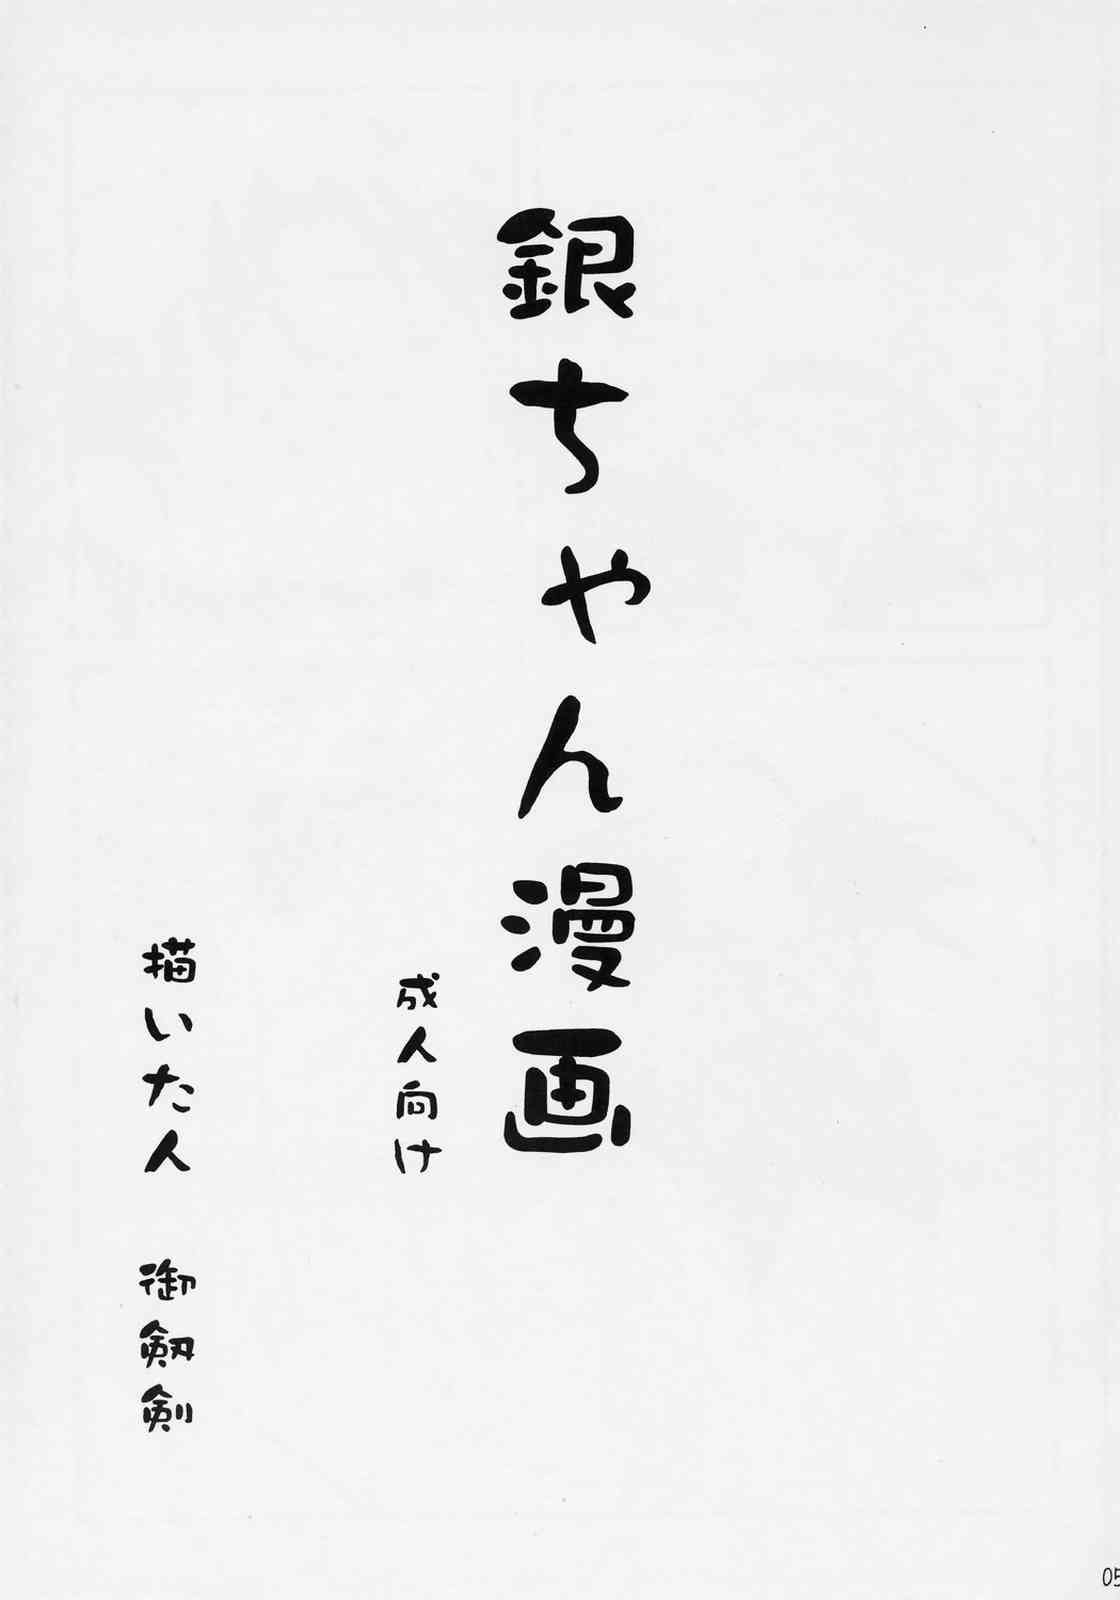 銀ちゃん漫画
成人向け
描いた人 御剱剣
05